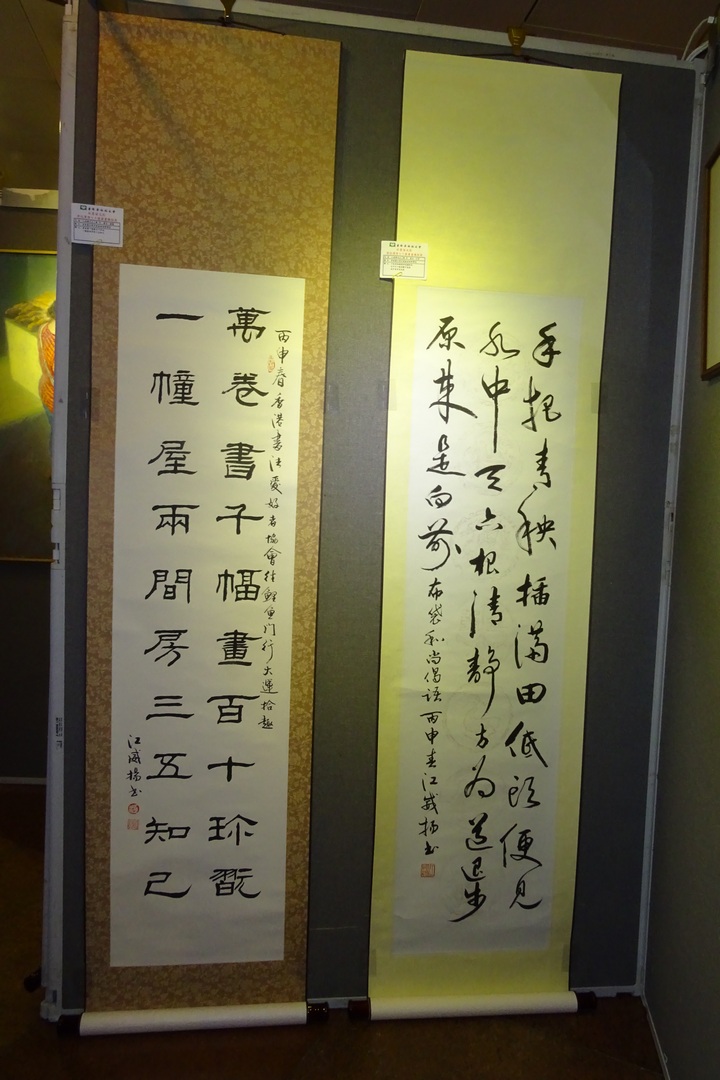 手把青秧插滿田低頭便見
水中天六根清靜方為道退步
原來是向前布袋和尚偈語丙申春江威揚書
丙申春香港書法愛好者協會往鯉魚門行大運拾趣
萬卷書千幅畫百十珍翫
一幢屋兩間房三五知己
江威揚書